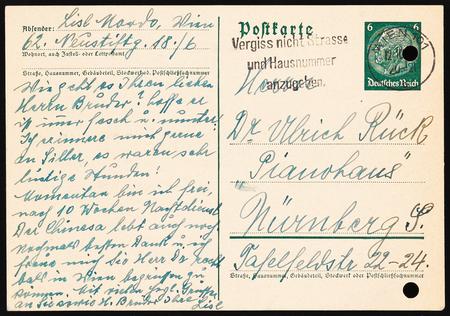 Absender: Lisl Mordo, Wien
62. Neustiftg. 18./6
Wohnort, auch Zustell- oder Leitpostamt
Straße, Hausnummer, Gebäudeteil, Stockwerk od. Postschließfachnummer
Wie geht es Ihrem lieben
Herrn Bruder? hoffe er
ist immer fesch u. munter!
Ich erinnere mich gerne
an Siller, es waren sehr
lustige Stunden!
Momentan bin ich frei,
nach 10 Wochen Nachtdienst.
Der Chinesa lebt auch noch
Nochmals besten Dank u. ich
freue mich Sie Herr Dr.
bals in Wien begrüßen zu
können. Mit vielen hrzl. Grüßen
an Sie sowie H. Bruder Ihre
Lisl
Postkarte
Vergiss nicht Strasse
und Hausnummer
anzugeben.
WIEN
6 6
Deutsches Reich
Herrn
Dr Ulrich Rück
"Pianohaus"
Nürnberg S.
Tafelfeldstr 22-24.
Straße, Hausnummer, Gebäudeteil, Stockwerk oder Postschließfachnummer